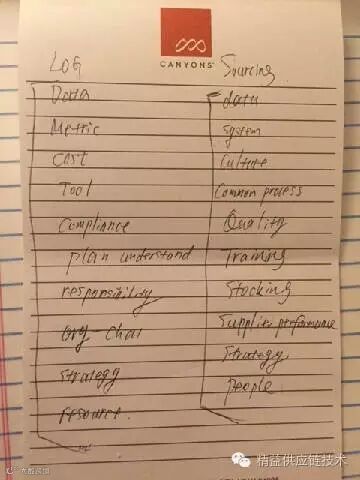 CANYONS
LOG Sourcing
Data data
Metric System
Cost Culture
Tool Common process
Compliance Quality
plan understand Training
responsibility Stocking
Org chai Supplier performance
Strategy Strategy
resource. People
精益供应链技术